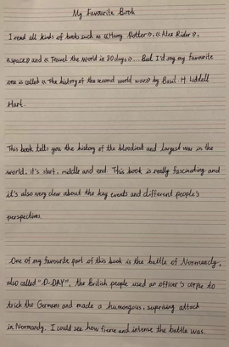 My Favourite Book
I read all kinds of books such as «Harry Potter», «Alex Rider»,
and « Travel the World in 80 days»... But I'd say my favourite
one is called « The history of the second world war» by Basil H Liddell
Hart.
This book tells you the history of the bloodiest and largest war in the
world, it's start, middle and end. This book is really fascinating and
it's also very clear about the key events and different people's
perspectives.
One of my favourite part of this book is the battle of Normandy,
also called "D-DAY", the British people used an officer's corpse to
trick the Germans and made a humongous, suprising attack
in Normandy. I could see how fierce and intense the battle was.